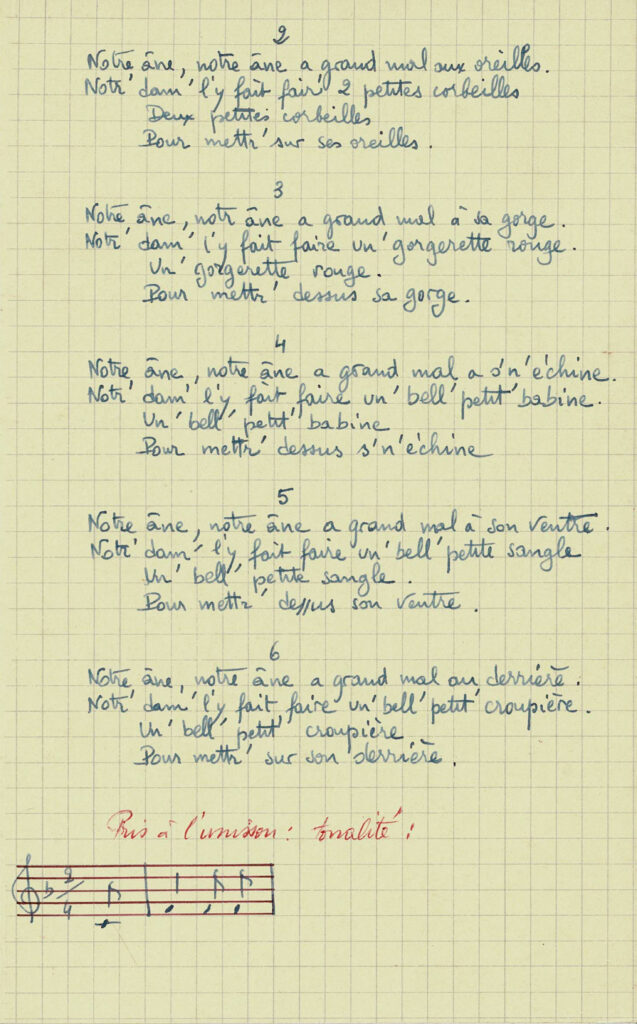 2
Notre âne, notre âne a grand mal aux oreilles.
Notr' dam' l'y fait fair' 2 petites corbeilles
Deux petites corbeilles
Pour mettr' sur ses oreilles.
3
Notre âne, notr âne a grand mal à sa gorge.
Notr' dam' l'y fait faire un' gorgerette rouge.
Un' gorgerette rouge.
Pour mettr' dessus sa gorge.
4
Notre âne, notre âne a grand mal a s'n'échine.
Notr' dam' l'y fait faire un' bell' petit' babine.
Un' bell' petit' babine
Pour mettr' dessus s'n'échine
5
Notre âne, notre âne a grand mal à son ventre.
Notr' dam' l'y fait faire un' bell' petite sangle
Un' bell' petite sangle.
Pour mettr' dessus son ventre.
6
Notre âne, notre âne a grand mal au derrière.
Notr' dam' l'y fait faire un' bell' petit' croupière.
Un' bell' petit' croupière
Pour mettr' sur son derrière.
Pris à l'unisson : tonalité :
2/4